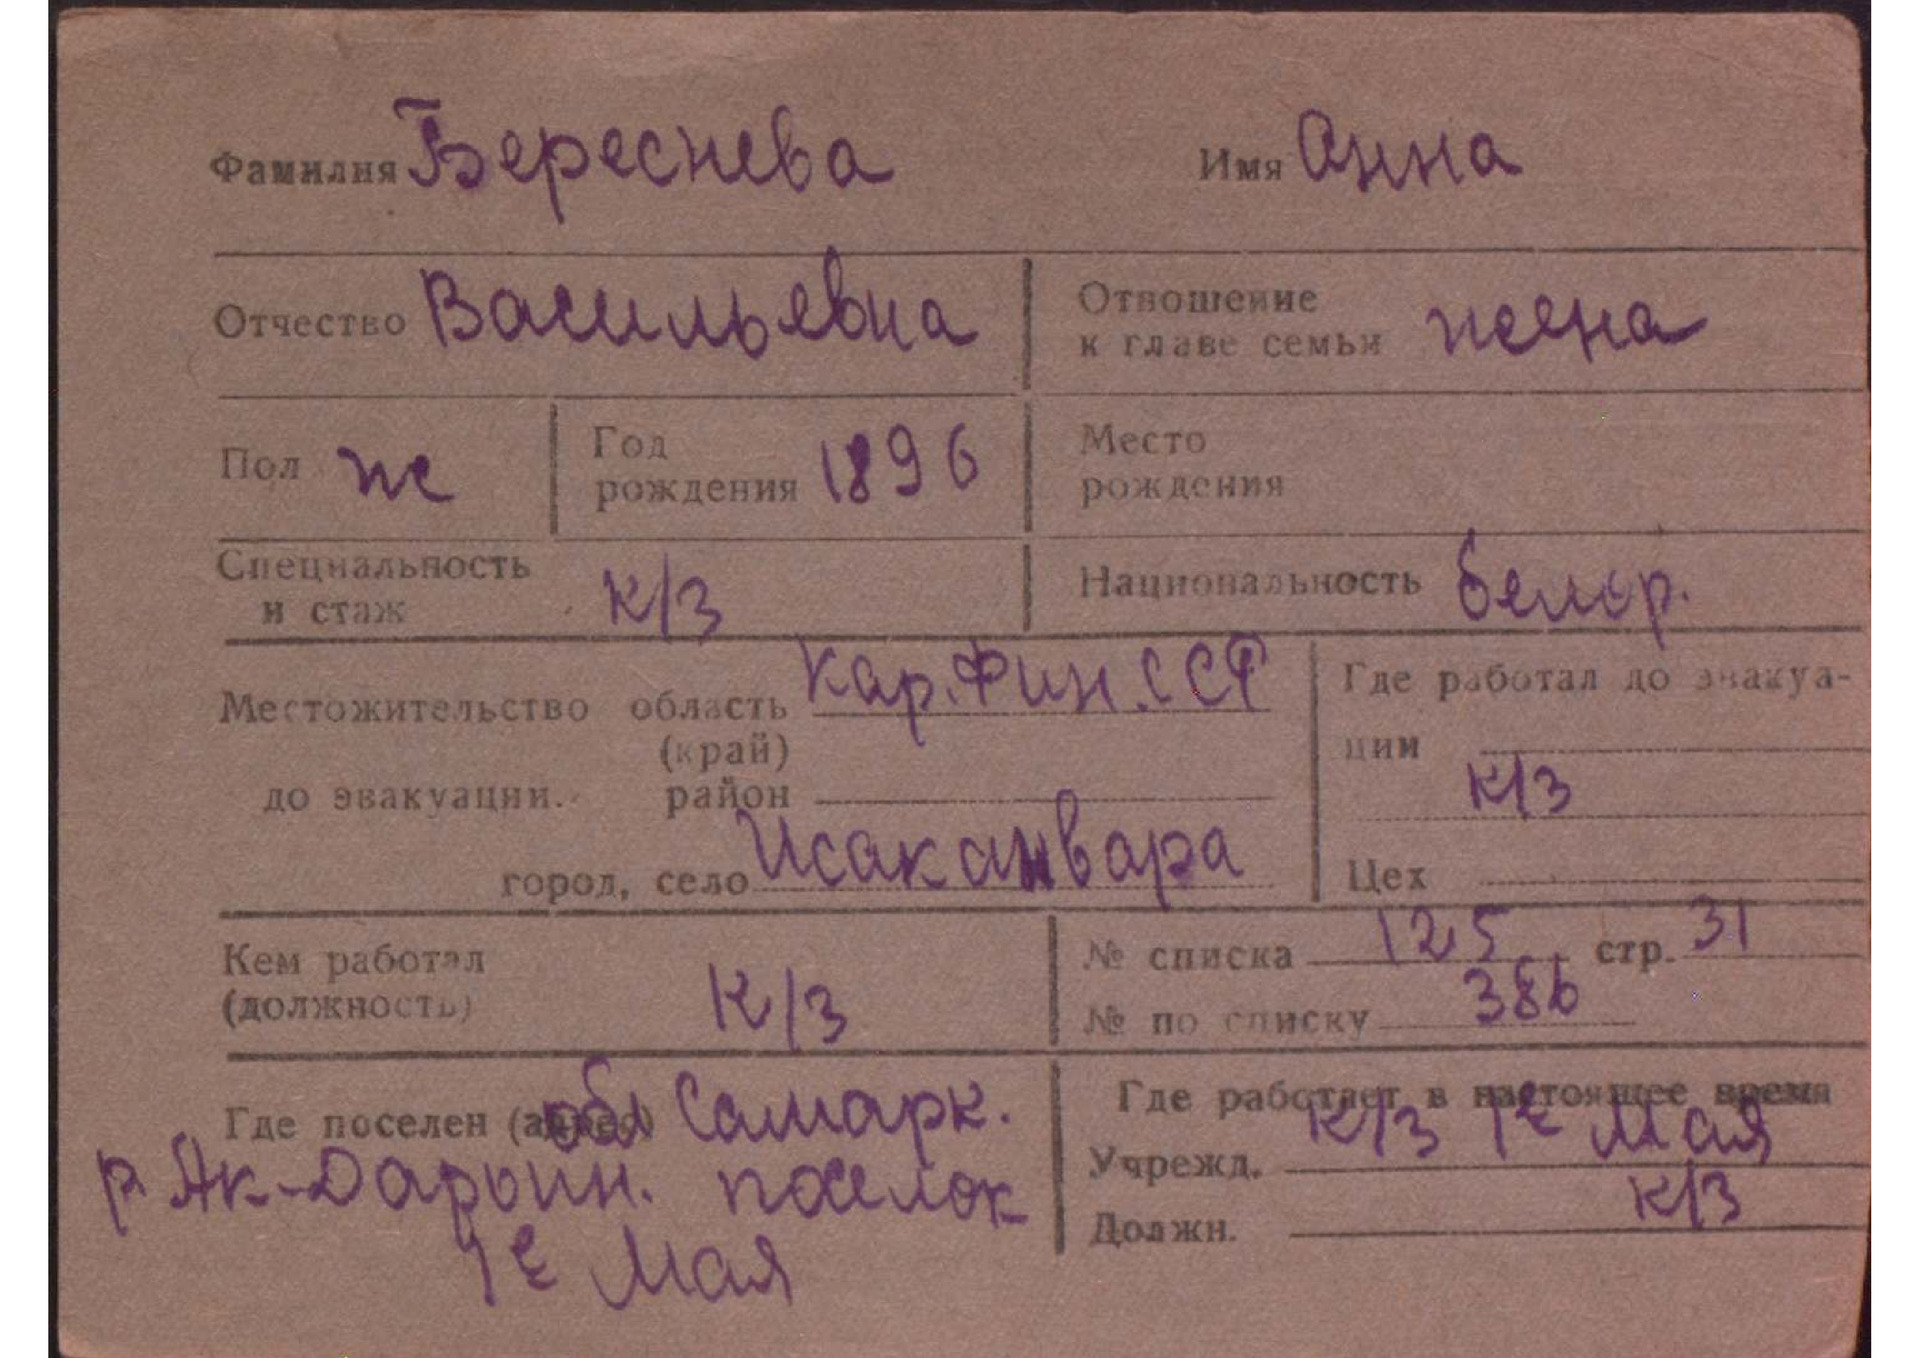 Фамилия Береснева Имя Анна
Отчество Васильевна Отношение
к главе семьи жена
Пол ж Год
рождения 1896 Место
рождения
Специальность
и стаж к/з Национальность белор.
Местожительство область Кар.Фин.ССР
(край)
до эвакуации. район
город, село Исаканвара
Где работал до эвакуа-
ции
к/з
Цех
Кем работал
(должность) к/з
№ списка 125 стр. 31
№ по списку 386
Где поселен (адрес) обл Самарк.
р. Ак-Дарьин. поселок
1е Мая
Где работает в настоящее время
Учрежд. к/з 1е Мая
Должн. к/з